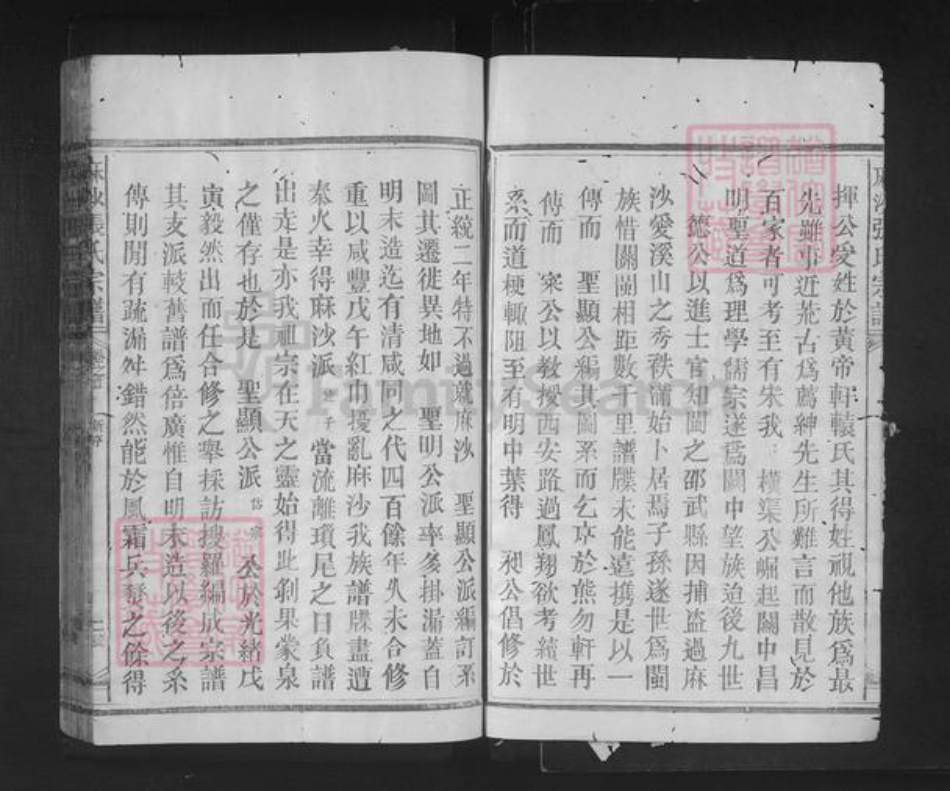 揮公受姓於黃帝軒轅氏其得姓視他族爲最
先雖事近荒古爲薦紳先生所難言而散見於
百家者可考至有宋我 橫渠公崛起關中昌
明聖道爲理學儒宗遂爲關中望族迨後九世
德公以進士官知閩之邵武縣因捕盜過麻
沙愛溪山之秀秩滿始卜居焉子孫遂世爲閩
族惜關閩相距數千里譜牒未能遠携是以一
傳而 聖顯公編其圖系而乞序於熊勿軒再
傳而 寀公以教授西安路過鳳翔欲考續世
系而道梗輙阻至有明中葉得 昶公倡修於
正統二年特不過就麻沙 聖顯公派編訂系
圖其遷徙異地如 聖明公派率多掛漏蓋自
明末造迄有清咸同之代四百餘年久未合修
重以咸豐戊午紅巾擾亂麻沙我族譜牒盡遭
秦火幸得麻沙派 子當流離瑣尾之日負譜
出走是亦我祖宗在天之靈始得此剩果蒙泉
之僅存也於是 聖顯公派 公於光緒戊
寅毅然出而任合修之舉採訪搜羅編成宗譜
其支派較舊譜爲倍廣惟自明末造以後之系
傳則間有疏漏舛錯然能於風霜兵燹之餘得
麻沙張氏宗譜
FamilySearch